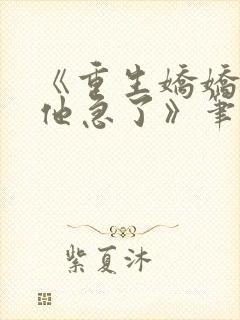 《重生娇娇
他急了》笔
紫夏沐